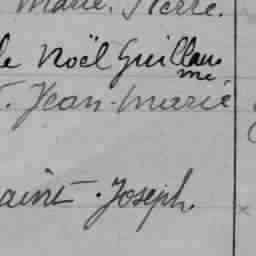 Marie. Pierre.
le Noël Guillau
me.
Jean-Marie
aint. Joseph.